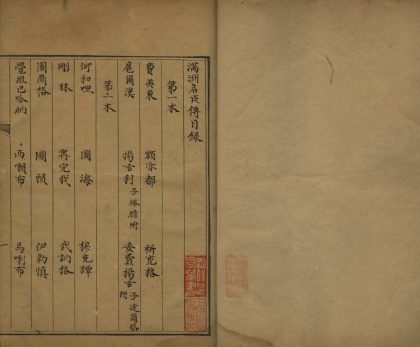 滿洲名臣傳目錄
第一本
費英東 額亦都 祈充格
扈爾漢 揚古利 子塔瞻附 安費揚古 子達爾岱附
第二本
何和哩 圖海 穆克譚
剛林 甯完我 武訥格
圖爾格 圖賴 伊勒慎
覺羅巴哈納 西喇布 馬喇希
一